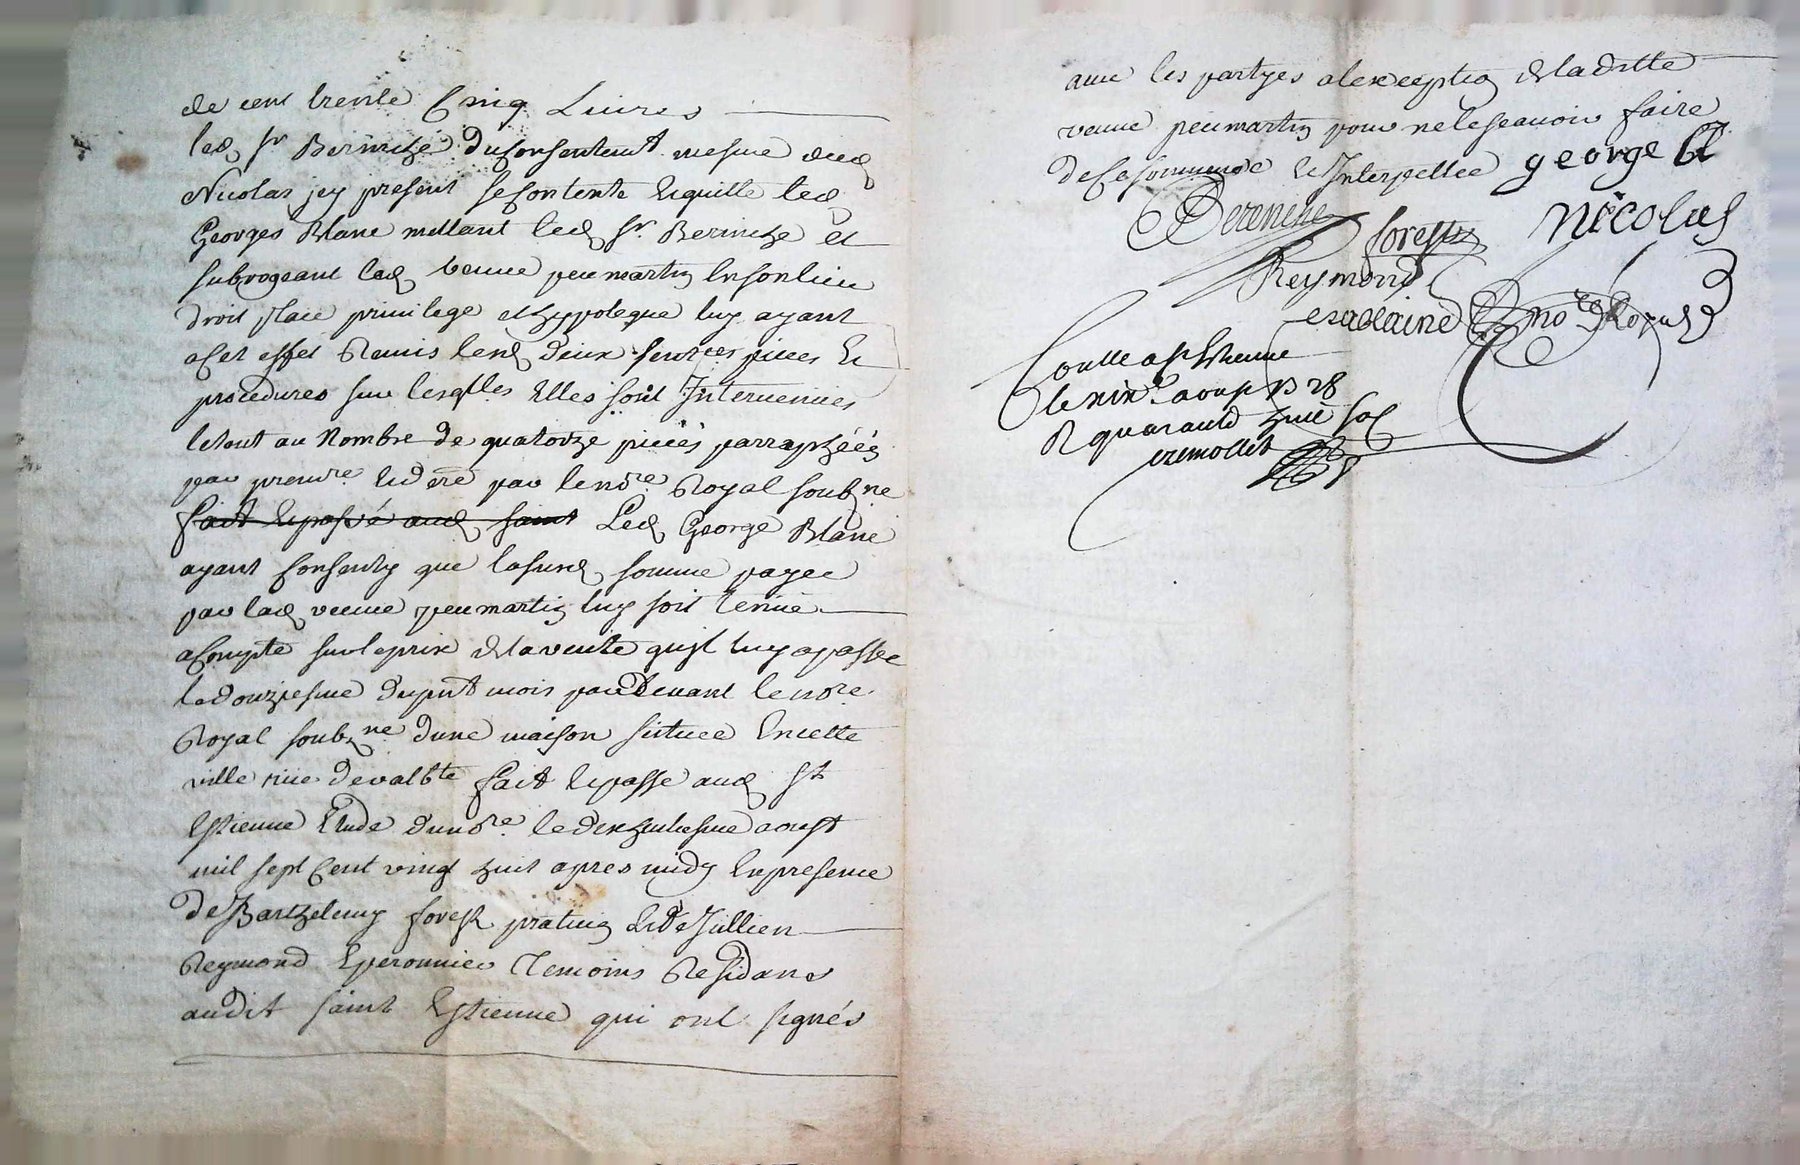 de cent trente Cinq Livres
led sr Beriniche du Consentemt mesme dud
Nicolas jcy present se Contente Et quitte led
Georges Blanc mettant led sr. Beriniche et
subrogeant lad veuve peumartin En son lieu
droit place privilege et hypoteque luy ayant
a Cet effet Remis lesd deux sentces pieces Et
procedures sur lesqlles Elles sont Intervenües
le tout au Nombre de quatorze pièces parraphéés
par premre Et dere par le nore Royal soubzne
fait Et passé aud saint Led George Blanc
ayant Consenty que la susd somme payee
par lad veuve peumartin luy soit tenüe
a Compte sur le prix de la vente qu'jl luy a passee
le douziesme du pnt mois pardevant le nore
Royal soubzne dune maison sittuee En cette
ville rüe de valbte fait Et passe aud St
Estienne Etude dud nore le dixhuitiesme aoust
mil sept Cent vingt huit apres midy En presence
de Barthelemy forest praticien Et de Jullien
Reymond Eperonnier Temoins Residans
audit saint Estienne qui ont signés
avec les partyes a lexception de laditte
veuve peumartin pour ne le sçavoir faire
de Ce sommée Et Interpellée george bl
Berenche forest nicolas
Reymond
no.re Royal
Conlle a St Etienne
le aoust 1728
R quarante huit sols